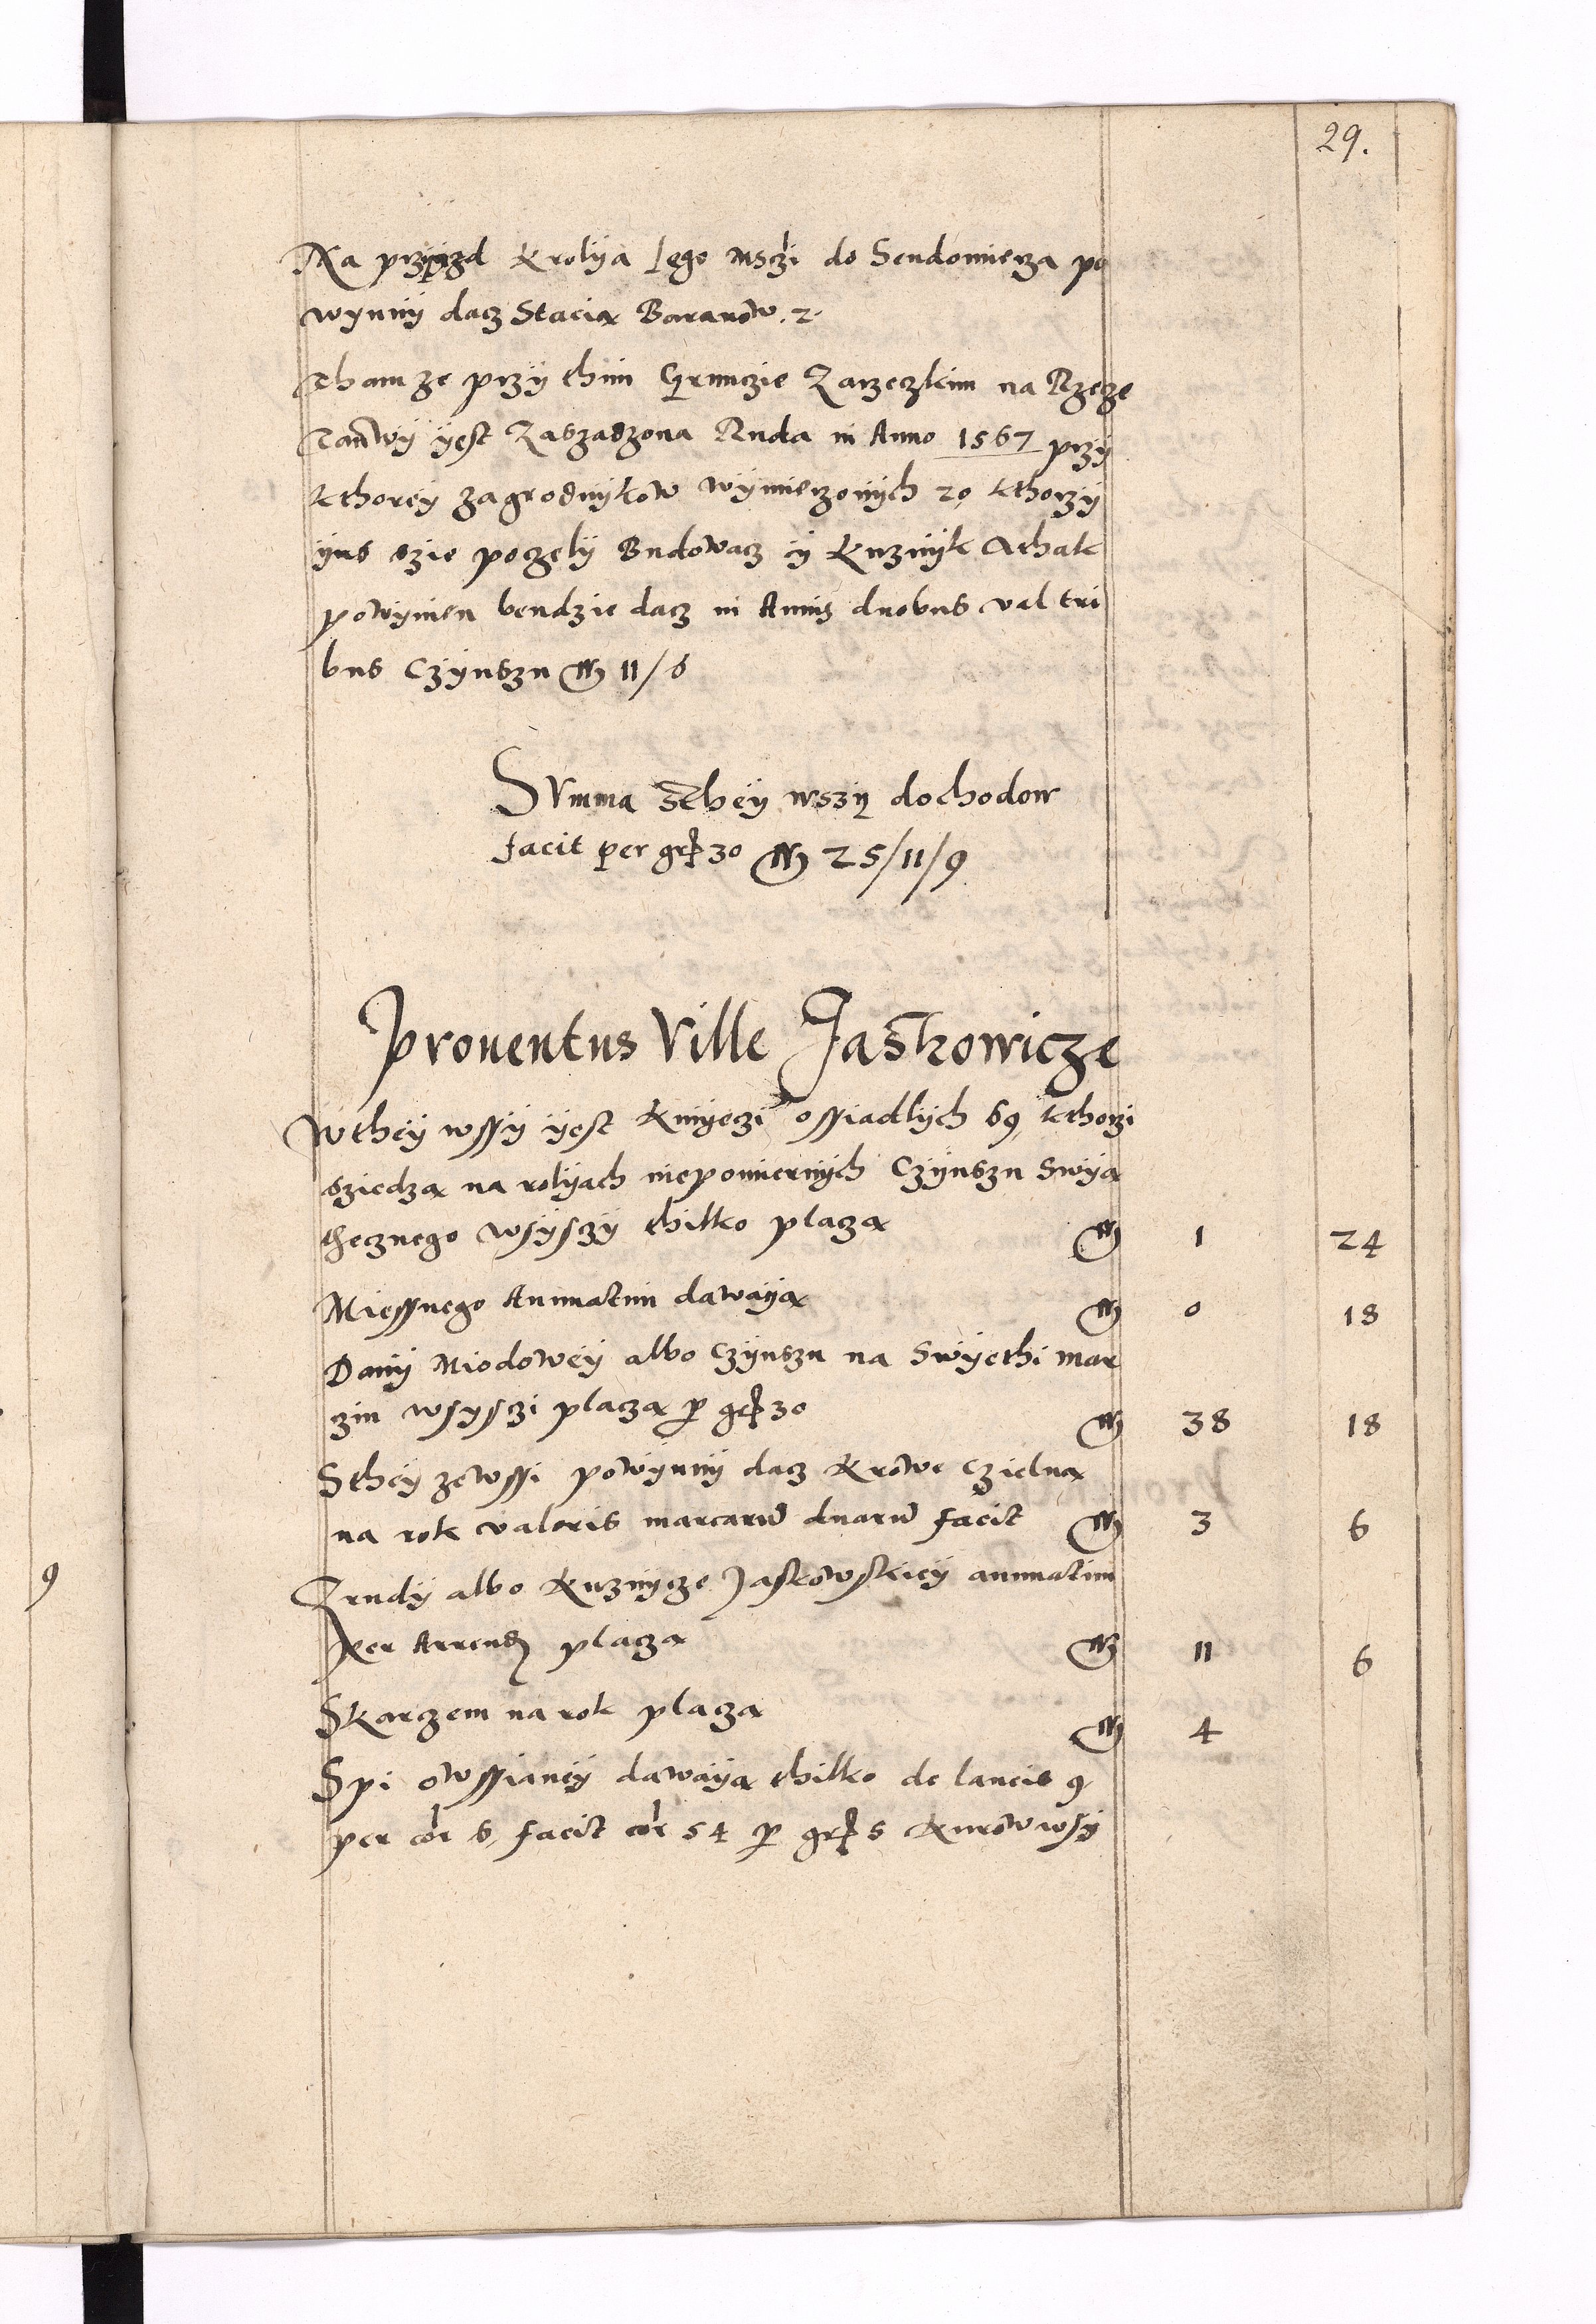 29.
Na przyjazd Krolya Jego Msczi do Sendomierza po
wynny dacz Stacia Baranow. 2.
Tham ze przy thim Gruncie Zarzeczkim na Rzeze
Tanwy yest Zaszadzona Ruda in Anno 1567 przy
kthorey zagrodnykow wymierzonych 20, kthorzy
yus szie poczely Budowacz y Kuznyk Athak
powynien bendzie dacz in Annis duobus val tri
bus Czynszu M 11/6
Summa sthey wszy dochodow
facit per gr 30 M 25/11/9
Prouentus Ville Jaskowicze
Wthey wssy yest Kmyeczi ossiadlych 69, kthorzi
sziedza na rolyach niepomiernych Czynszu Swya
thecznego wsysczy thilko placza M 1 24
Miessnego Annuatim dawaya M 0 18
Dany Miodowey albo Czynszu na Swyethi mar
czin wsysczi placza p gr 30 M 38 18
Sthey zewssi powynny dacz Krowe Czielna
na rok valoris marcaru duaru facit M 3 6
Zrudy albo Kuznycze Jaskowskiey annuatim
per Arrend placza M 11 6
Skarczem na rok placza M 4
Spi owssianey dawaya thilko de laneis 9
per cor 6, facit cor 54 p gr 5 Kurow wsy
9